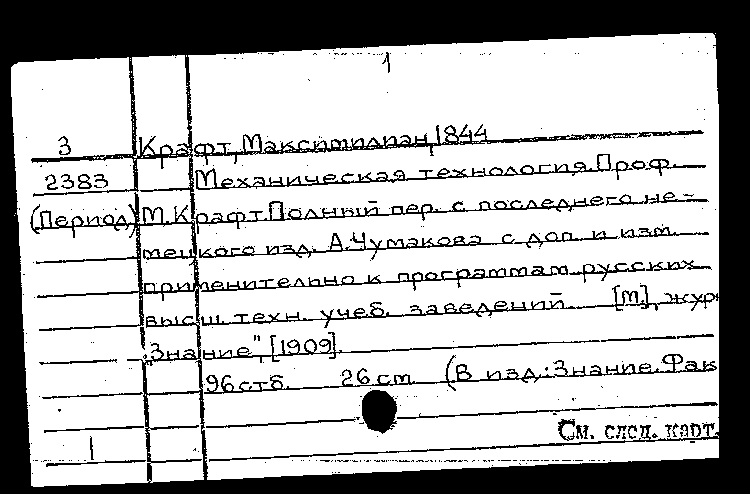 1
3 Крафт, Максимилиан, 1844
2383 Механическая технология. Проф.
(Период) М. Крафт. Полный пер. с последнего не-
мецкого изд. А. Чумакова с доп. и изм.
применительно к программам русских
высш. техн. учеб. заведений. [м], жур
"Знание", [1909].
96 стб. 26 см (В изд.: Знание. Фак
См. след. карт.
1